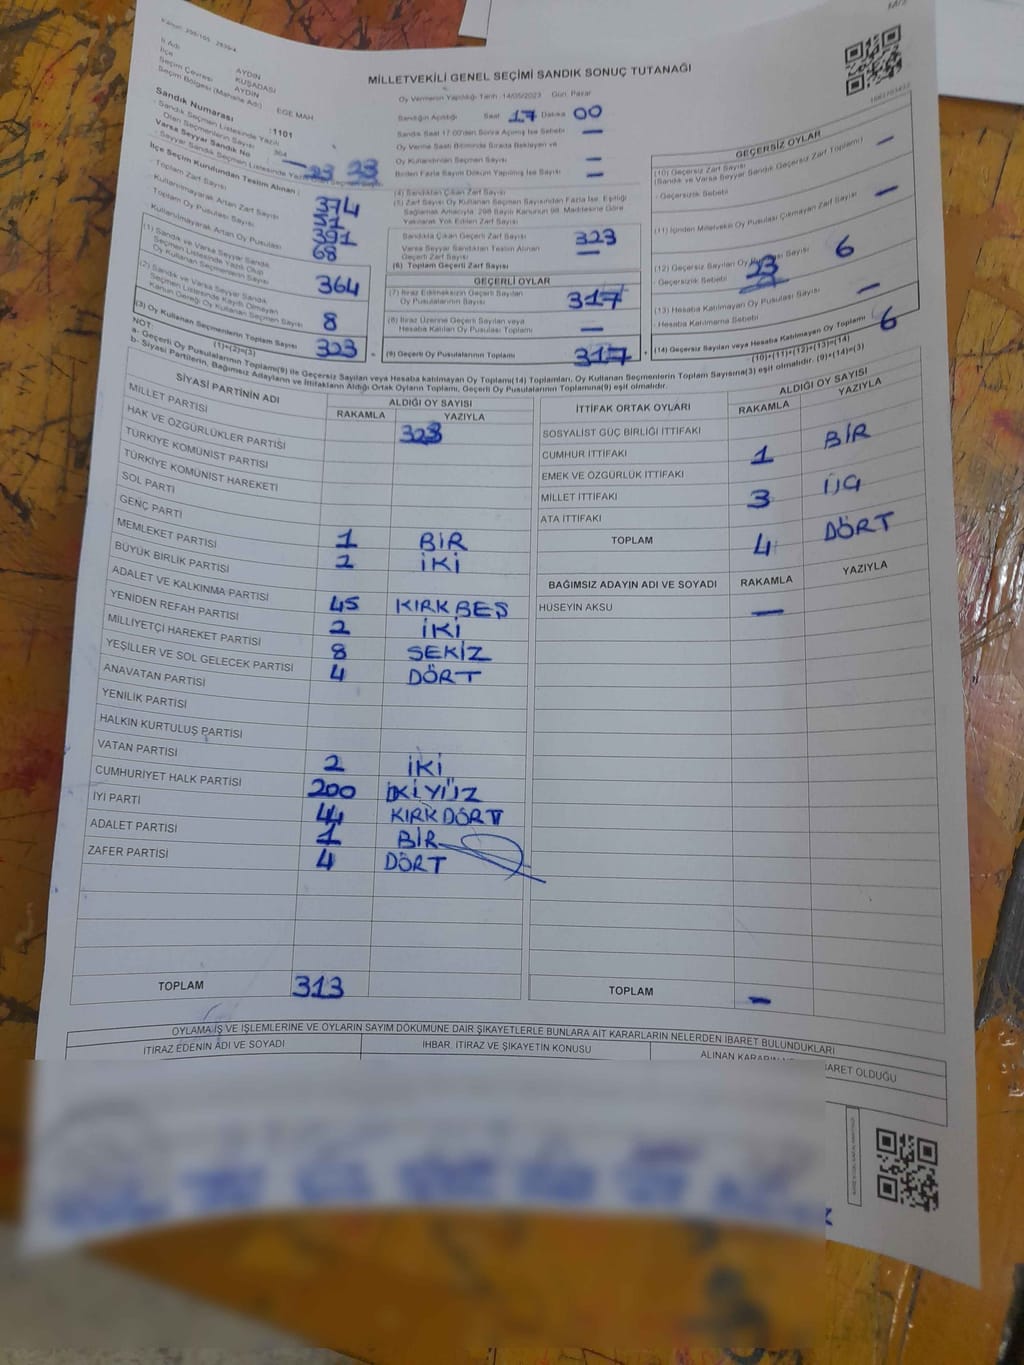 Kanun: 298/105 - 2839/4
MİLLETVEKİLİ GENEL SEÇİMİ SANDIK SONUÇ TUTANAĞI
İl Adı AYDIN
İlçe KUŞADASI
Seçim Çevresi AYDIN
Seçim Bölgesi (Mahalle Adı) EGE MAH
Sandık Numarası : 1101
Sandık Seçmen Listesinde Yazılı
Olan Seçmenlerin Sayısı
Varsa Seyyar Sandık No
İlçe Seçim Kurulundan Teslim Alınan :
Toplam Zarf Sayısı 374
Kullanılmayarak Artan Zarf Sayısı 51
Toplam Oy Pusulası Sayısı 391
Kullanılmayarak Artan Oy Pusulası 68
(1) Sandık ve Varsa Seyyar Sandık
Seçmen Listesinde Yazılı Olup
Oy Kullanan Seçmenlerin Sayısı 364
(2) Sandık ve Varsa Seyyar Sandık
Seçmen Listesinde Kayıtlı Olmayan
Kanun Gereği Oy Kullanan Seçmen Sayısı 8
(3) Oy Kullanan Seçmenlerin Toplam Sayısı
(1)+(2)=(3) 323
Oy Vermenin Yapıldığı Tarih : 14/05/2023 Gün: Pazar
Sandığın Açıldığı Saat 17 Dakika 00
Sandık Saat 17:00'den Sonra Açılmış İse Sebebi —
Oy Verme Saati Bitiminde Sırada Bekleyen ve
Oy Kullandırılan Seçmen Sayısı —
Birden Fazla Sayım Döküm Yapılmış İse Sayısı —
(4) Sandıktan Çıkan Zarf Sayısı
(5) Zarf Sayısı Oy Kullanan Seçmen Sayısından Fazla İse, Eşitliği
Sağlamak Amacıyla, 298 Sayılı Kanunun 98. Maddesine Göre
Yakılarak Yok Edilen Zarf Sayısı
Sandıkta Çıkan Geçerli Zarf Sayısı 323
Varsa Seyyar Sandıktan Teslim Alınan
Geçerli Zarf Sayısı —
(6) Toplam Geçerli Zarf Sayısı
GEÇERLİ OYLAR
(7) İtiraz Edilmeksizin Geçerli Sayılan
Oy Pusulalarının Sayısı 317
(8) İtiraz Üzerine Geçerli Sayılan veya
Hesaba Katılan Oy Pusulası Toplamı —
(9) Geçerli Oy Pusulalarının Toplamı 317
GEÇERSİZ OYLAR
(10) Geçersiz Zarf Sayısı
(Sandık ve Varsa Seyyar Sandık Geçersiz Zarf Toplamı) —
Geçersizlik Sebebi
(11) İçinden Milletvekili Oy Pusulası Çıkmayan Zarf Sayısı —
(12) Geçersiz Sayılan Oy Pusulası Sayısı 6
Geçersizlik Sebebi
(13) Hesaba Katılmayan Oy Pusulası Sayısı —
Hesaba Katılmama Sebebi
(14) Geçersiz Sayılan veya Hesaba Katılmayan Oy Toplamı 6
(10)+(11)+(12)+(13)=(14)
NOT:
a- Geçerli Oy Pusulalarının Toplamı(9) ile Geçersiz Sayılan veya Hesaba katılmayan Oy Toplamı(14) Toplamları, Oy Kullanan Seçmenlerin Toplam Sayısına(3) eşit olmalıdır. (9)+(14)=(3)
b- Siyasi Partilerin, Bağımsız Adayların ve İttifakların Aldığı Ortak Oyların Toplamı, Geçerli Oy Pusulalarının Toplamına(9) eşit olmalıdır.
SİYASİ PARTİNİN ADI ALDIĞI OY SAYISI
RAKAMLA YAZIYLA
MİLLET PARTİSİ 323
HAK VE ÖZGÜRLÜKLER PARTİSİ
TÜRKİYE KOMÜNİST PARTİSİ
TÜRKİYE KOMÜNİST HAREKETİ
SOL PARTİ
GENÇ PARTİ
MEMLEKET PARTİSİ 1 BİR
BÜYÜK BİRLİK PARTİSİ 2 İKİ
ADALET VE KALKINMA PARTİSİ 45 KIRKBEŞ
YENİDEN REFAH PARTİSİ 2 İKİ
MİLLİYETÇİ HAREKET PARTİSİ 8 SEKİZ
YEŞİLLER VE SOL GELECEK PARTİSİ 4 DÖRT
ANAVATAN PARTİSİ
YENİLİK PARTİSİ
HALKIN KURTULUŞ PARTİSİ
VATAN PARTİSİ 2 İKİ
CUMHURİYET HALK PARTİSİ 200 İKİYÜZ
İYİ PARTİ 44 KIRKDÖRT
ADALET PARTİSİ 1 BİR
ZAFER PARTİSİ 4 DÖRT
TOPLAM 313
İTTİFAK ORTAK OYLARI ALDIĞI OY SAYISI
RAKAMLA YAZIYLA
SOSYALİST GÜÇ BİRLİĞİ İTTİFAKI
CUMHUR İTTİFAKI 1 BİR
EMEK VE ÖZGÜRLÜK İTTİFAKI
MİLLET İTTİFAKI 3 ÜÇ
ATA İTTİFAKI
TOPLAM 4 DÖRT
BAĞIMSIZ ADAYIN ADI VE SOYADI RAKAMLA YAZIYLA
HÜSEYİN AKSU —
TOPLAM —
OYLAMA İŞ VE İŞLEMLERİNE VE OYLARIN SAYIM DÖKÜMÜNE DAİR ŞİKAYETLERLE BUNLARA AİT KARARLARIN NELERDEN İBARET BULUNDUKLARI
İTİRAZ EDENİN ADI VE SOYADI İHBAR, İTİRAZ VE ŞİKAYETİN KONUSU ALINAN KARARIN İBARET OLDUĞU